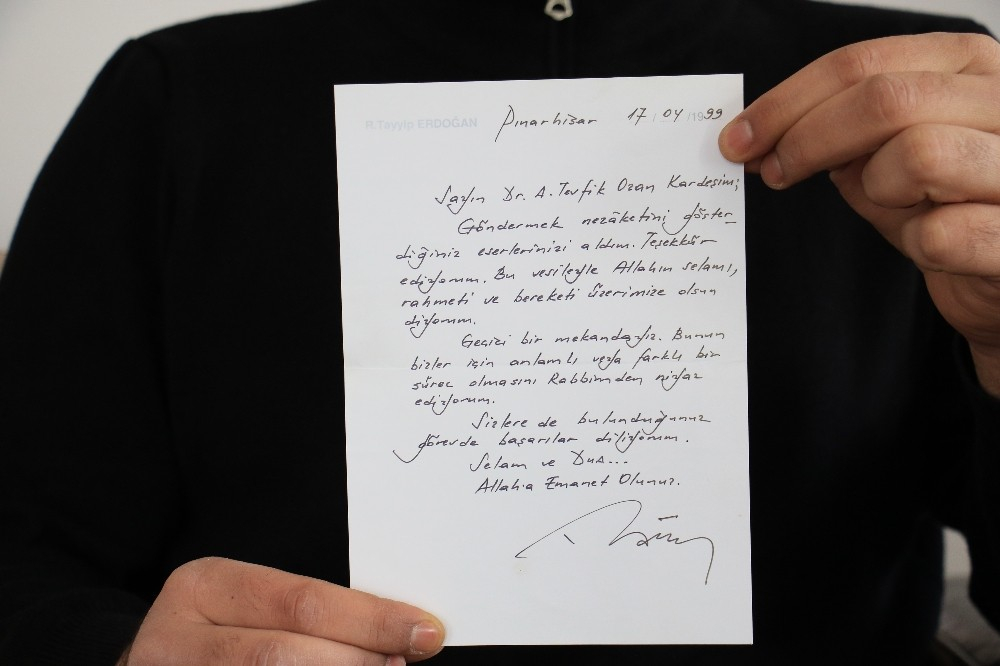 R.Tayyip ERDOĞAN
Pınarhisar 17/04/1999
Sayın Dr. A. Tevfik Ozan Kardeşim;
Göndermek nezâketini göster-
diğiniz eserlerinizi aldım. Teşekkür
ediyorum. Bu vesileyle Allahın selamı,
rahmeti ve bereketi üzerimize olsun
diyorum.
Geçici bir mekandayız. Bunun
bizler için anlamlı veya farklı bir
süreç olmasını Rabbimden niyaz
ediyorum.
Sizlere de bulunduğunuz
görevde başarılar diliyorum.
Selam ve Dua...
Allah'a Emanet Olunuz.